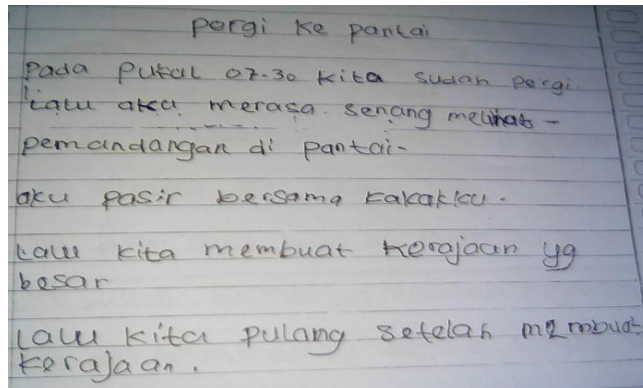 pergi ke pantai
Pada pukul 07.30 kita sudah pergi.
Lalu aku merasa. senang melihat -
pemandangan di pantai-
aku pasir bersama kakakku.
Lalu kita membuat kerajaan yg
besar
Lalu kita pulang setelah membuat
kerajaan.